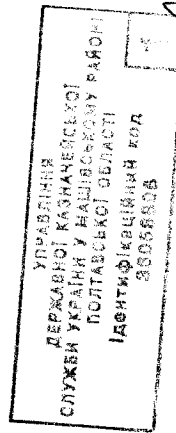 УПРАВЛІННЯ
ДЕРЖАВНОЇ КАЗНАЧЕЙСЬКОЇ
СЛУЖБИ УКРАЇНИ У МАШІВСЬКОМУ РАЙОНІ
ПОЛТАВСЬКОЇ ОБЛАСТІ
Ідентифікаційний код